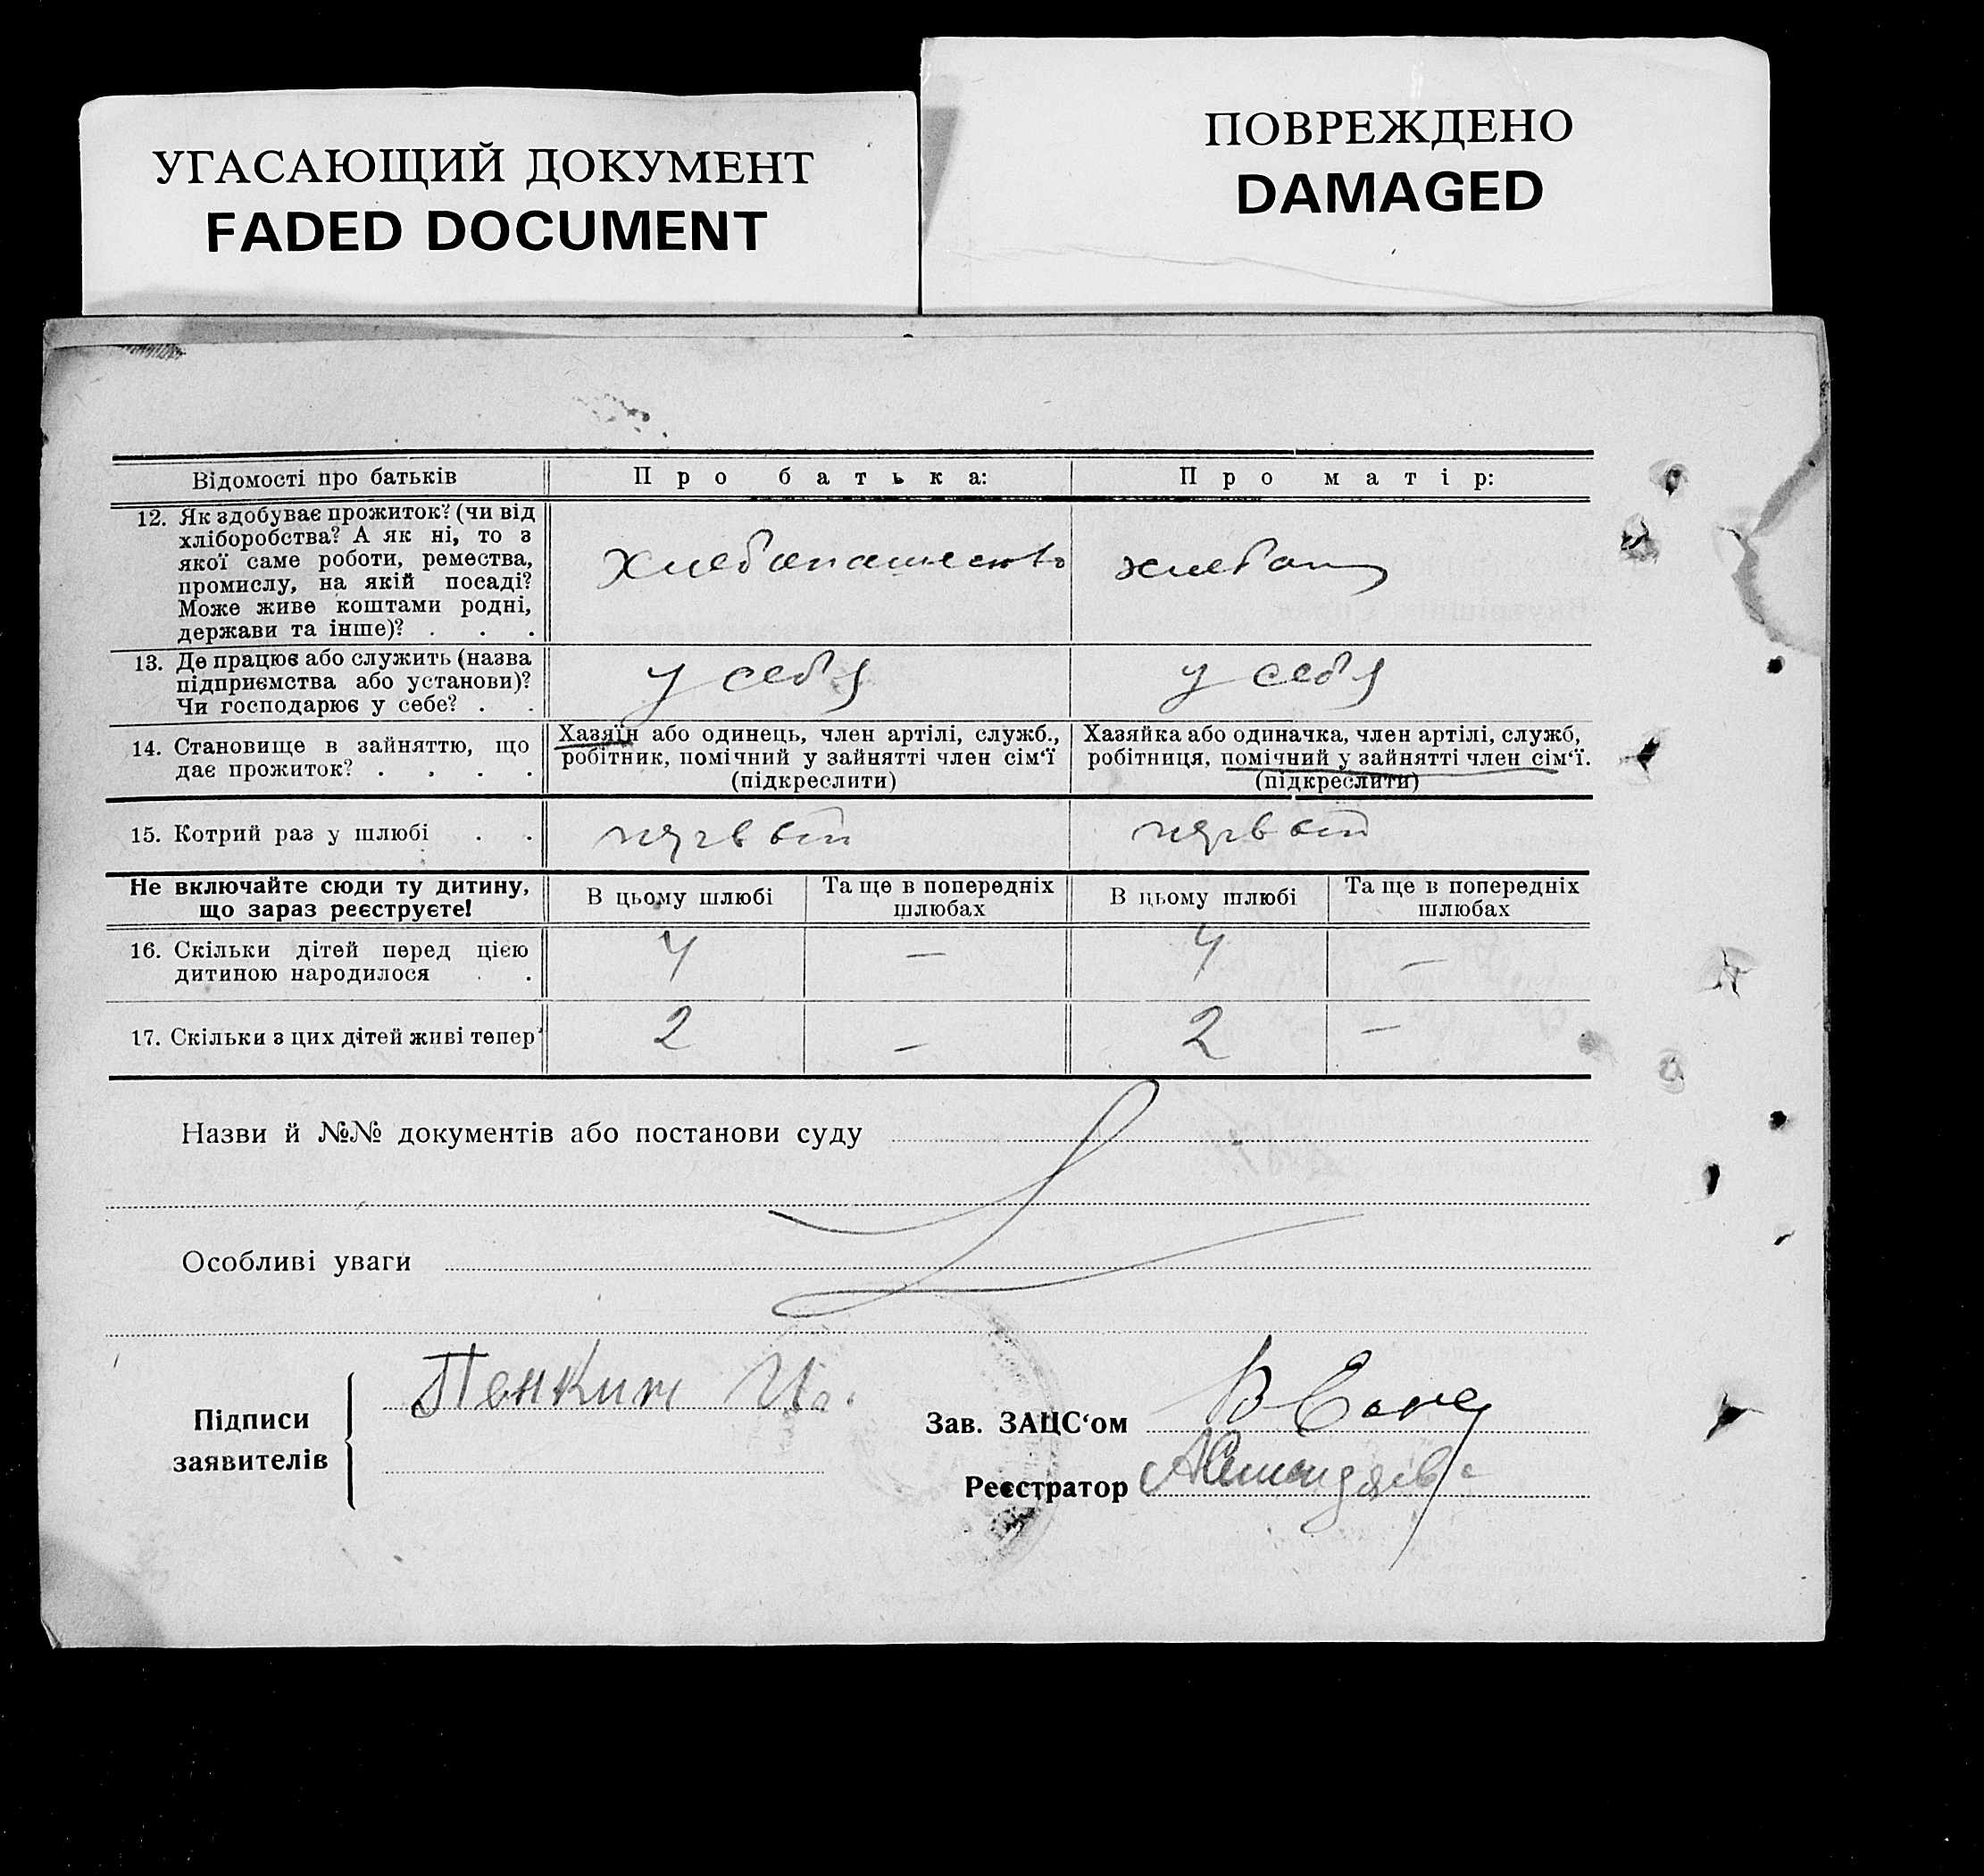 УГАСАЮЩИЙ ДОКУМЕНТ
FADED DOCUMENT
ПОВРЕЖДЕНО
DAMAGED
Відомості про батьків
Про батька:
Про матір:
12. Як здобуває прожиток? (чи від
хліборобства? А як ні, то з
якої саме роботи, ремества,
промислу, на якій посаді?
Може живе коштами родні,
держави та інше)? . . .
Хлебопашество
хлебоп
13. Де працює або служить (назва
підприємства або установи)?
Чи господарює у себе? . .
у себя
у себя
14. Становище в зайняттю, що
дає прожиток? . . . .
Хазяїн або одинець, член артілі, служб.,
робітник, помічний у зайнятті член сім'ї
(підкреслити)
Хазяйка або одиначка, член артілі, служб,
робітниця, помічний у зайнятті член сім'ї.
(підкреслити)
15. Котрий раз у шлюбі . .
первый
первый
Не включайте сюди ту дитину,
що зараз реєструєте!
В цьому шлюбі
Та ще в попередніх
шлюбах
В цьому шлюбі
Та ще в попередніх
шлюбах
16. Скільки дітей перед цією
дитиною народилося . .
4
—
4
—
17. Скільки з цих дітей живі тепер
2
—
2
—
Назви й №№ документів або постанови суду
Особливі уваги
Підписи
заявителів
Пенкин
Зав. ЗАЦС'ом
Реєстратор